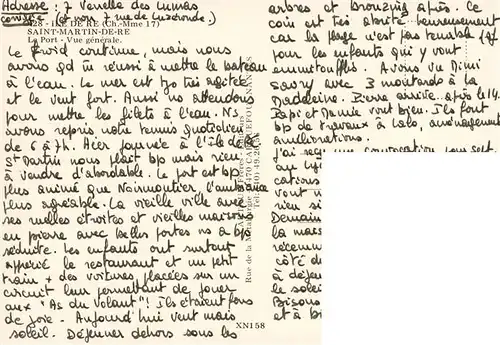 Adresse : 7 Venelle des Cumas
corrigée (et non 7 rue de
328 - ILE DE RE (Ch.-Mme 17)
SAINT-MARTIN-DE-RE
Le Port - Vue générale.
Le froid continue, mais nous
avons qd m réussi à mettre le bateau
à l'eau. Le mer est tjo très agitée
et le vent fort. Aussi ns attendons
pour mettre les filets à l'eau. Ns
avons repris notre tennis quotidien
de 6 à 7h. Hier journée à l'île de Ré
St Martin nous plait bp mais rien
à vendre d'abordable. Le port est bp
plus animé que Noirmoutier, l'ambiance
plus agréable. La vieille ville avec
ses ruelles étroites et vieilles maisons
en pierre avec belles portes ns a bp
séduite. Les enfants ont surtout
apprécié le restaurant et un petit
train + des voitures placées sur un
circuit leur permettant de jouer
aux "As du Volant"! Ils étaient fous
de joie. Aujourd'hui vent mais
soleil. Déjeuner dehors sous les
XN158
Rue de la Métallurgie - 44470 CARQUEFOU
arbres et bronzing après. Ce
coin est très abrité heureusement
car la plage n'est pas tenable (qf
pour les enfants qui y vont
emmitouflés. Avons vu Mimi
samy avec 3 moutards à la
Madeleine. Pierre arrive après le 14.
Papi et Mamie vont bien. Ils font
bp de travaux à Lalo, aménagement
améliorations.
j'ai reçu une convocation
au
cations
vont n
rien si
Demain
la mass
récemm
côté d
à déje
le solei
Bisous
et à b